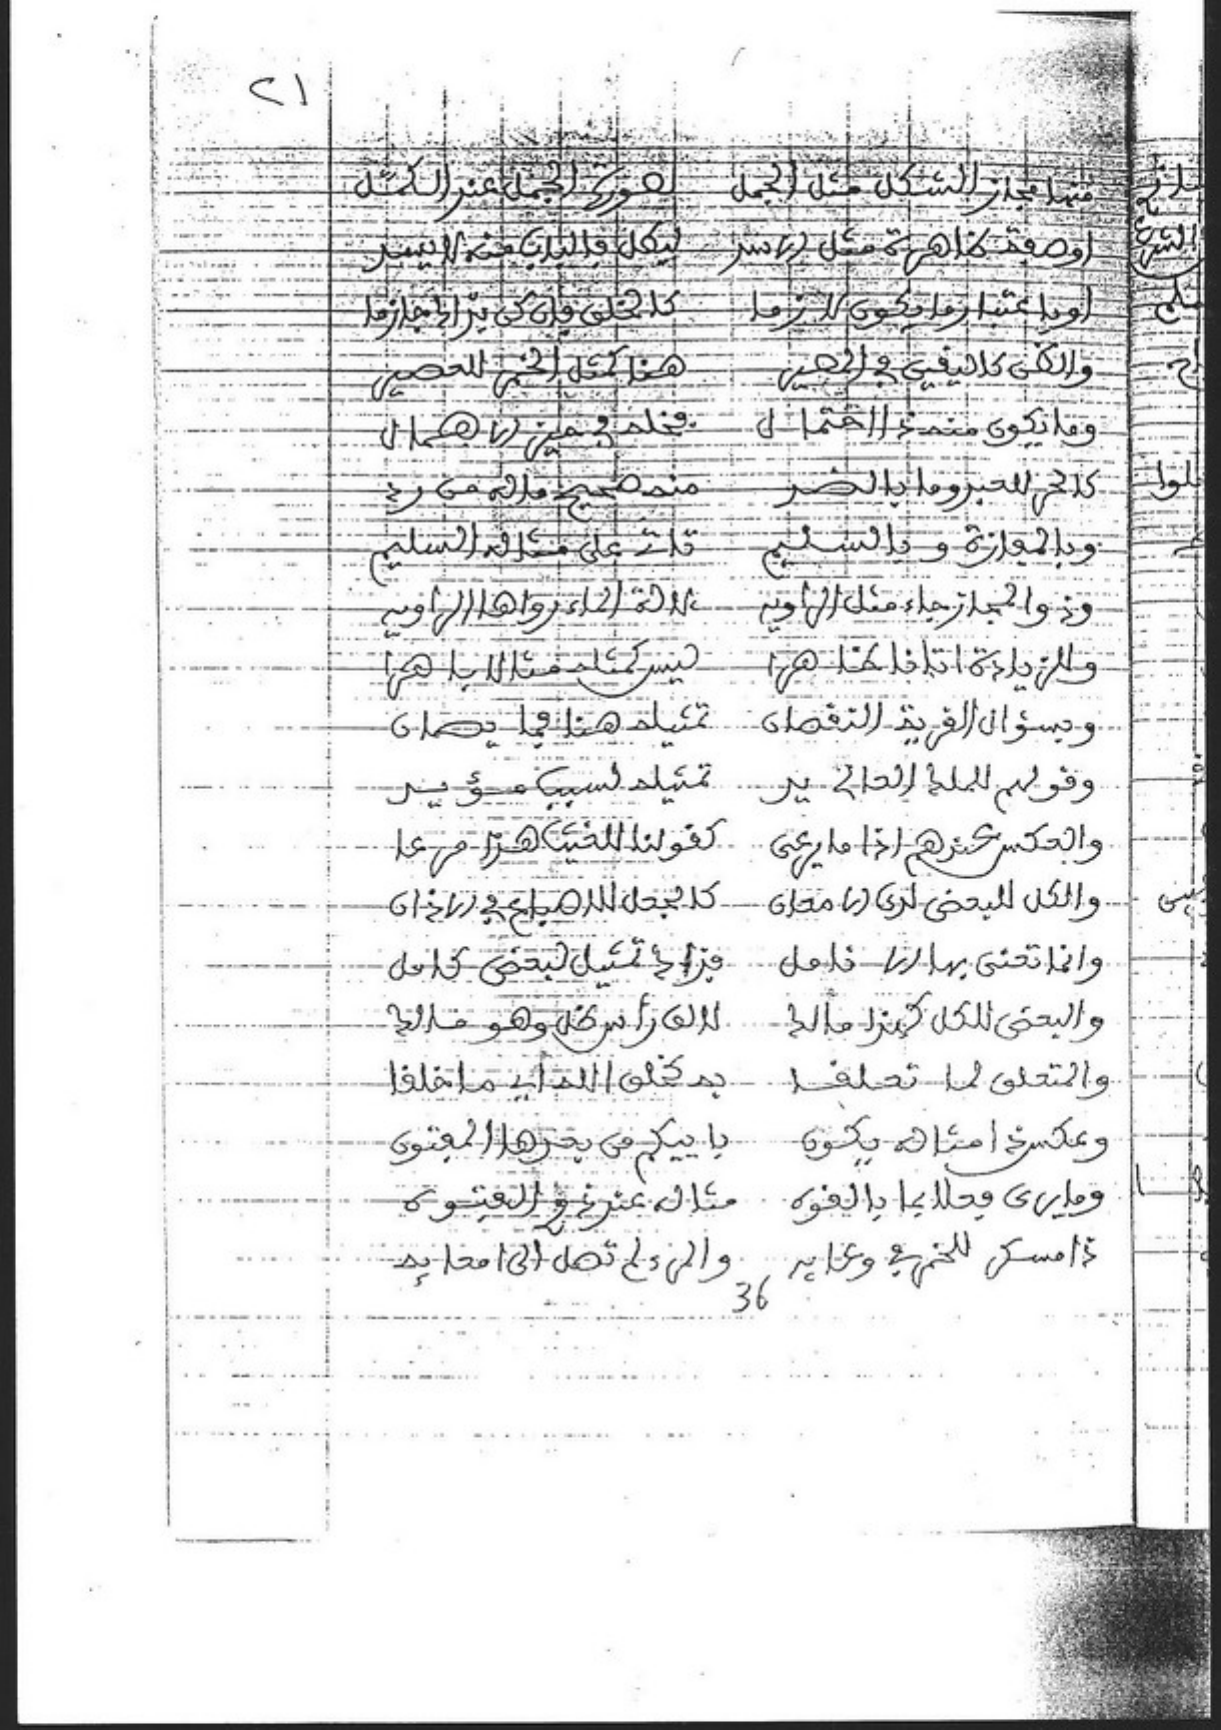 ٢١
منها مجاز الشكل مثل الجمل لصورة الجمل عند الكمثل
او صفة ظاهرة مثل الاسد ليكل والباب منه لا يسد
او باعتبار ما يكون لازما كالخلق فإن كن جازما
والظن كاليقين في المصير هذا كمثل الخمر للعصير
وما يكون منه ذا احتمال فخله في حيز الاهمال
كالحر للعبد وما بالضد منه صحيح ماله من رد
وبالمفازة وبالسليم تأتي على مثاله السليم
وذو المجاز جاء مثل الراويه لالة الماء رواها الراويه
وللزيادة اتانا هذا ليس كمثله مثالا هذا
وبسؤال القرية النقصان تمثيله هنا فما يصان
وقولهم للملك العالي يد تمثيله لسبب مؤيد
والعكس عندهم اذا ما يرعى كقولنا للغيث هذا مرعا
والكل للبعض لدى الامعان كالجعل للاصباع في الاذان
وانما تعنى بها الانامل فذاك تمثيل لبعض كامل
والبعض للكل كهذا مالك لالف رأس كل وهو مالك
والمتعلق لما تعلقا به كخلق الله أي ما خلقا
وعكس ذا مثاله يكون بأييكم من بعدها المفتون
وما يرى فعلا بما بالقوه مثاله عند ذوي الفتوه
ذا مسكر للخمر في وعايه والمرء لم تصل الى امعايه
36